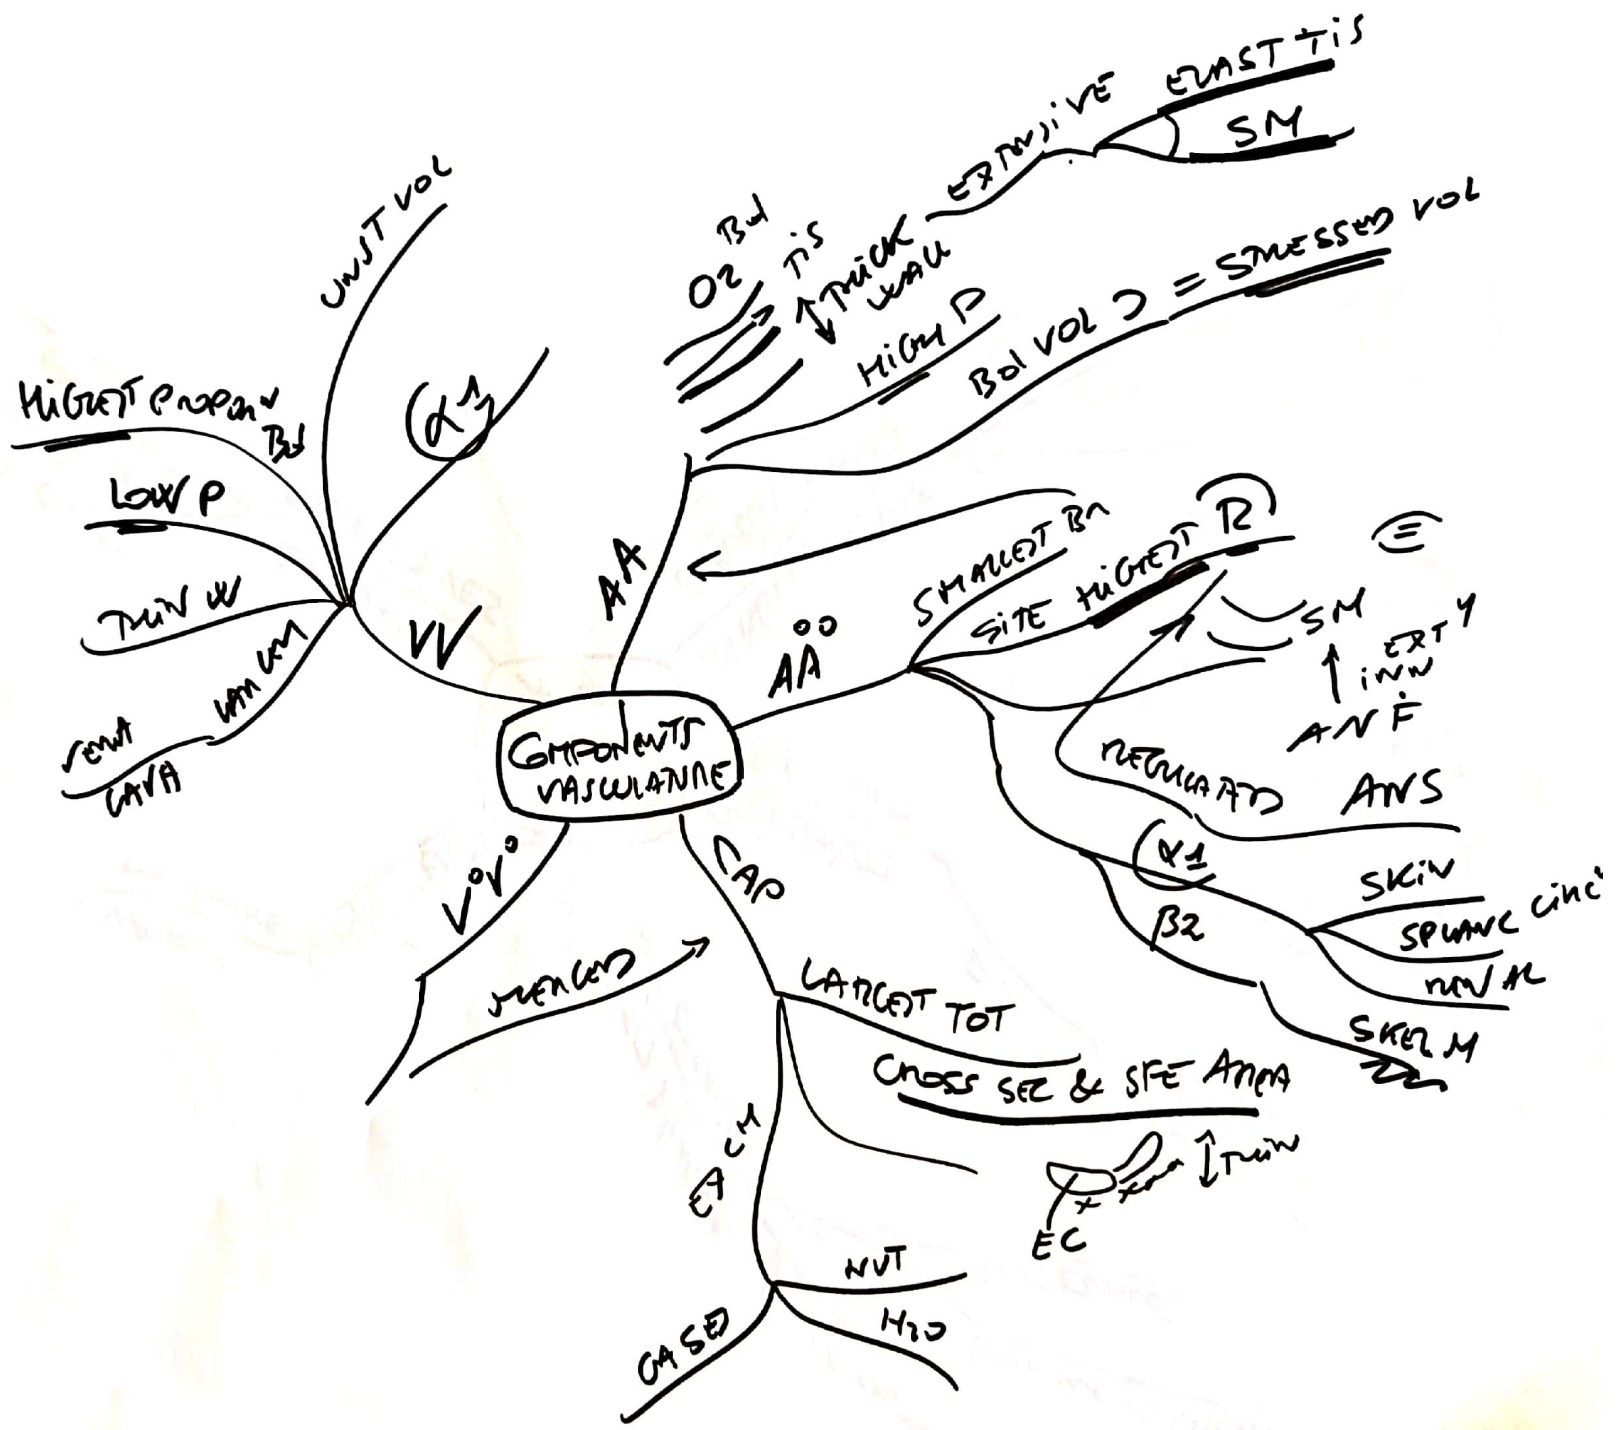 COMPONENTS
VASCULATURE
AA
O2 Bd
TIS
THICK
WALL
EXTENSIVE
ELAST TIS
SM
HIGH P
Bd VOL = STRESSED VOL
AA°°
SMALLEST Br
SITE HIGHEST R
SM
EXT Y
INN
ANF
REGULATED ANS
α1
SKIN
SPLANC CIRC
RENAL
β2
SKEL M
CAP
LARGEST TOT
CROSS SEC & SFE AREA
THIN
EC
EXCH
NUT
H2O
GASES
V°V°
MERGED
VV
α1
UNST VOL
HIGHEST PROPORT
Bd
LOW P
THIN W
VENA
CAVA